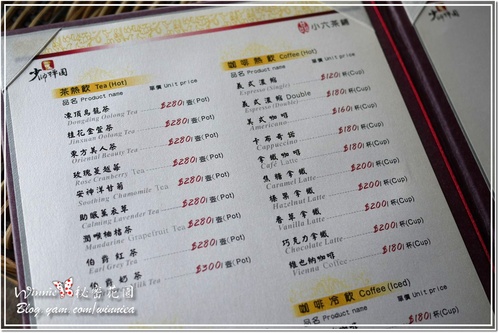 少帥禪園
小六茶鋪
茶熱飲 Tea (Hot)
品名 Product name 單價 Unit price
凍頂烏龍茶 $280/壺(Pot)
Dongding Oolong Tea
桂花金萱茶 $280/壺(Pot)
Jinxuan Oolong Tea
東方美人茶 $280/壺(Pot)
Oriental Beauty Tea
玫瑰蔓越莓 $280/壺(Pot)
Rose Cranberry Tea
安神洋甘菊 $280/壺(Pot)
Soothing Chamomile Tea
助眠薰衣草 $280/壺(Pot)
Calming Lavender Tea
潤喉柚桔茶 $280/壺(Pot)
Mandarine Grapefruit Tea
伯爵紅茶 $280/壺(Pot)
Earl Grey Tea
伯爵奶茶 $300/壺(Pot)
Milk Tea
咖啡熱飲 Coffee (Hot)
品名 Product name 單價 Unit price
義式濃縮 $120/杯(Cup)
Espresso (Single)
義式濃縮 Double $180/杯(Cup)
Espresso (Double)
美式咖啡 $160/杯(Cup)
Americano
卡布奇諾 $180/杯(Cup)
Cappuccino
拿鐵咖啡 $180/杯(Cup)
Café Latte
焦糖拿鐵 $200/杯(Cup)
Caramel Latte
榛果拿鐵 $200/杯(Cup)
Hazelnut Latte
香草拿鐵 $200/杯(Cup)
Vanilla Latte
巧克力拿鐵 $200/杯(Cup)
Chocolate Latte
維也納咖啡 $180/杯(Cup)
Vienna Coffee
咖啡冷飲 Coffee (Iced)
品名 Product name 單價 Unit price
$180/杯(Cup)
Winnie 私密花園
Blog.yam.com/winnica